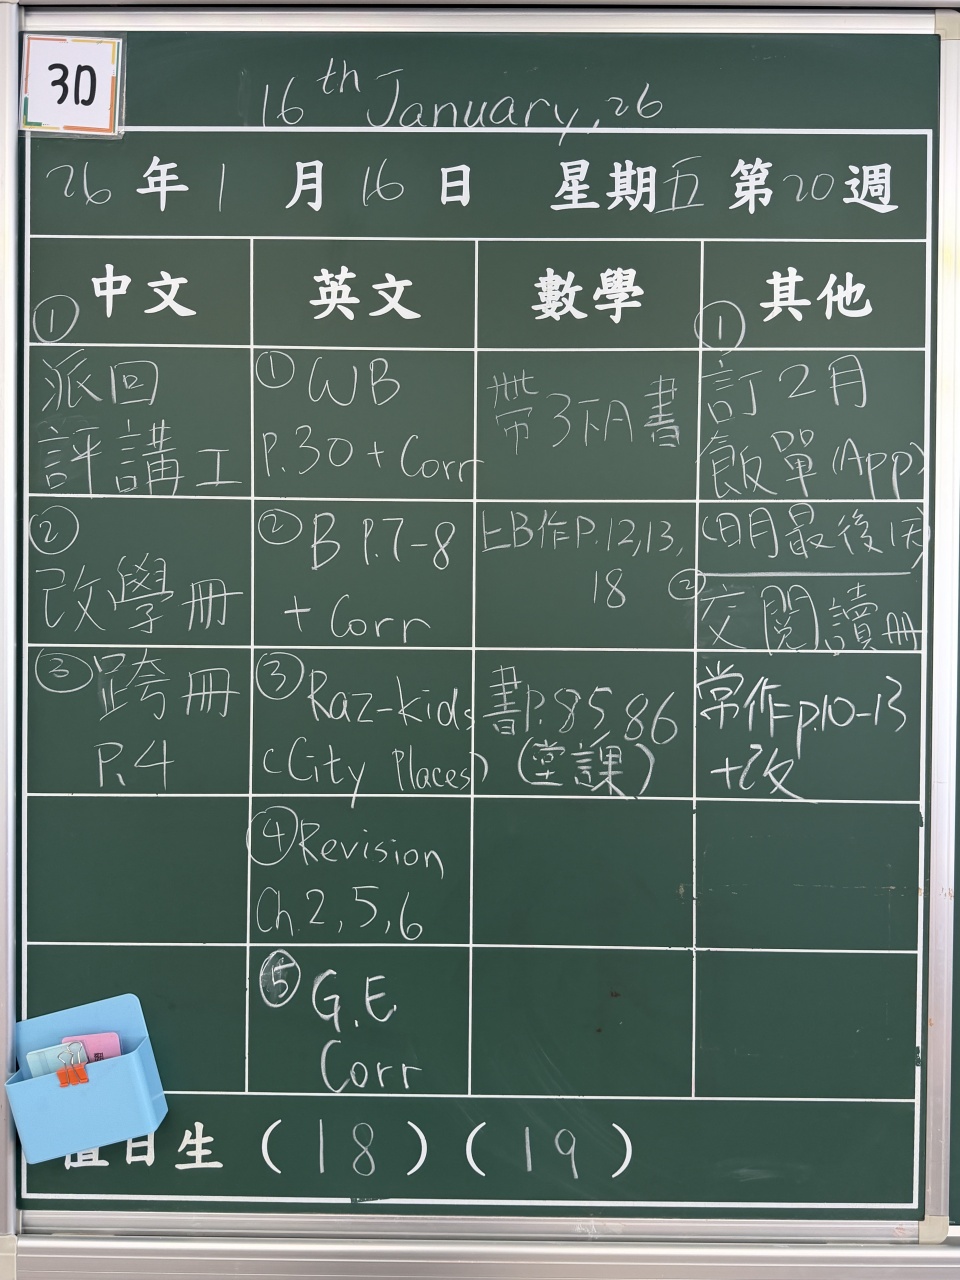 3D
16th January, 26
26 年 1 月 16 日 星期五 第 20 週
中文 英文 數學 其他
①
派回
評講工
②
改學冊
③ 跨冊
P.4
① WB
P.30 + Corr
② B P.7-8
+ Corr
③ Raz-kids
(City Places)
④ Revision
Ch.2, 5, 6
⑤ G.E.
Corr
帶3下A書
上B作P.12,13,
18
書P.85,86
(堂課)
①
訂2月
飯單(App)
(日月最後1天)
② 交閱讀冊
常作p.10-13
+改
值日生 (18) (19)